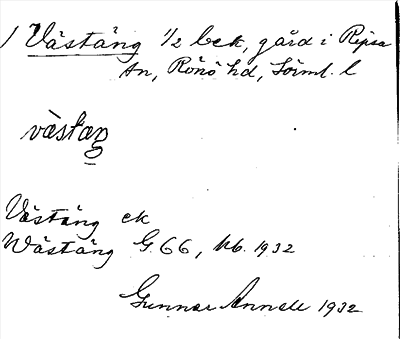 1 Västäng 1/2 bek, gård i Ripsa
sn, Rönö hd, Sörml. l
västaŋ
Västäng ek
Wästäng G.66, Mb. 1932
Gunnar Annell 1932